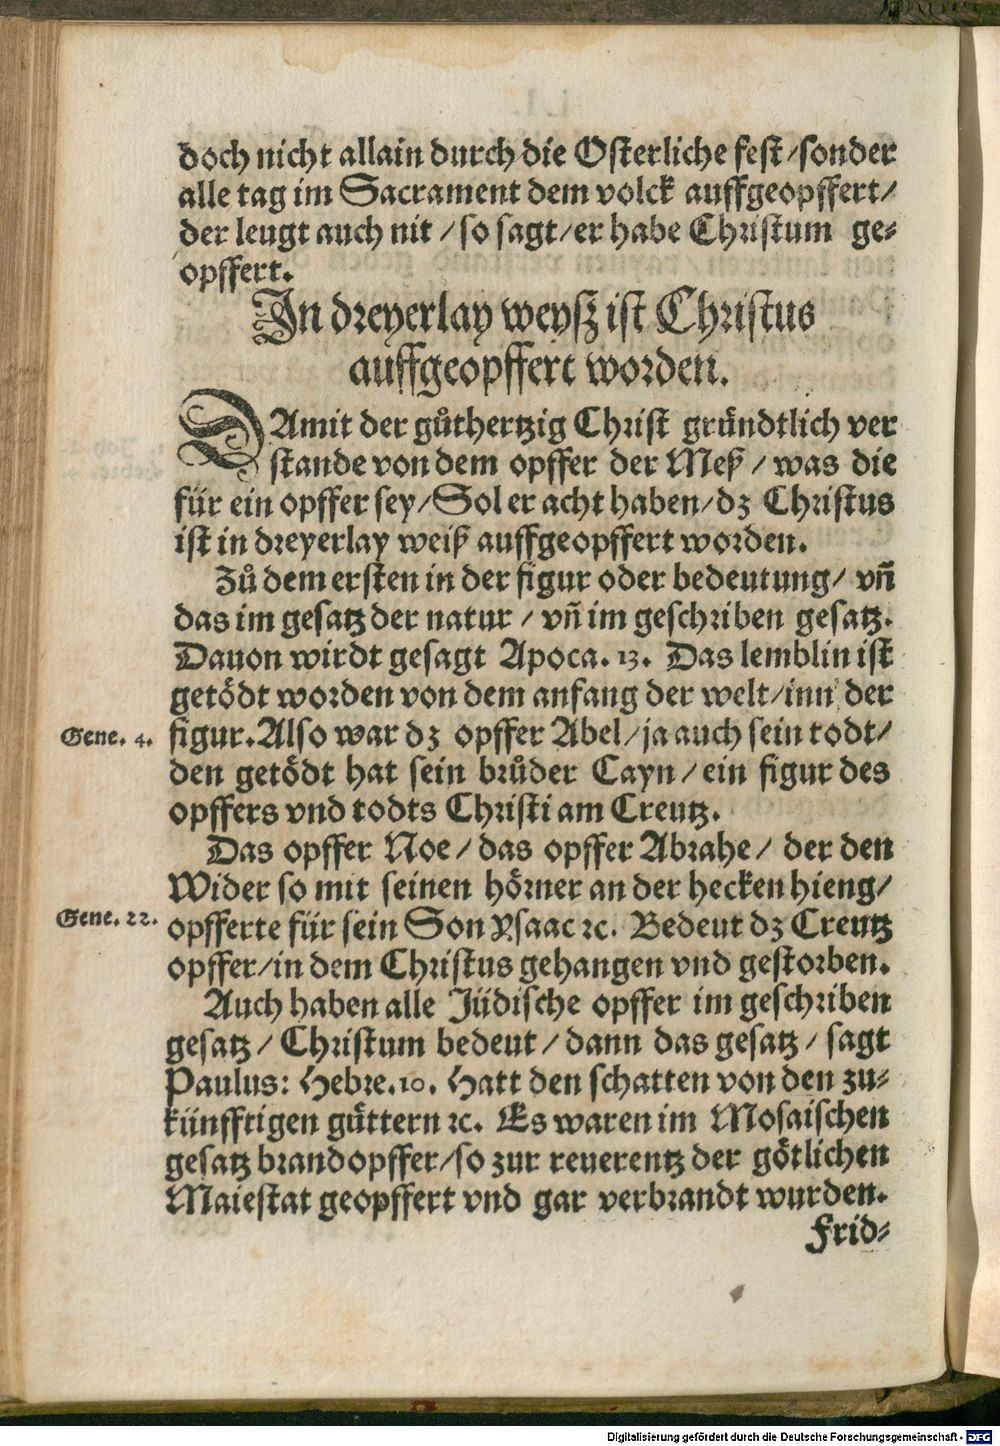 doch nicht allain durch die Osterliche fest/sonder
alle tag im Sacrament dem volck auffgeopffert/
der leugt auch nit/so sagt/er habe Christum ge-
opffert.
In dreyerlay weysz ist Christus
auffgeopffert worden.
DAmit der gůthertzig Christ gründtlich ver
stande von dem opffer der Meß/was die
für ein opffer sey/Sol er acht haben/dz Christus
ist in dreyerlay weiß auffgeopffert worden.
Zů dem ersten in der figur oder bedeutung/vñ
das im gesatz der natur/vñ im geschriben gesatz.
Dauon wirdt gesagt Apoca. 13. Das lemblin ist
getödt worden von dem anfang der welt/inn der
Gene. 4. figur. Also war dz opffer Abel/ja auch sein todt/
den getödt hat sein brůder Cayn/ein figur des
opffers vnd todts Christi am Creutz.
Das opffer Noe/das opffer Abrahe/der den
Wider so mit seinen hörner an der hecken hieng/
Gene. 22. opfferte für sein Son Ysaac ꝛc. Bedeut dz Creutz
opffer/in dem Christus gehangen vnd gestorben.
Auch haben alle Jüdische opffer im geschriben
gesatz/Christum bedeut/dann das gesatz/sagt
Paulus: Hebre. 10. Hatt den schatten von den zu-
künfftigen güttern ꝛc. Es waren im Mosaischen
gesatz brandopffer/so zur reuerentz der götlichen
Maiestat geopffert vnd gar verbrandt wurden.
Frid-
Digitalisierung gefördert durch die Deutsche Forschungsgemeinschaft - DFG